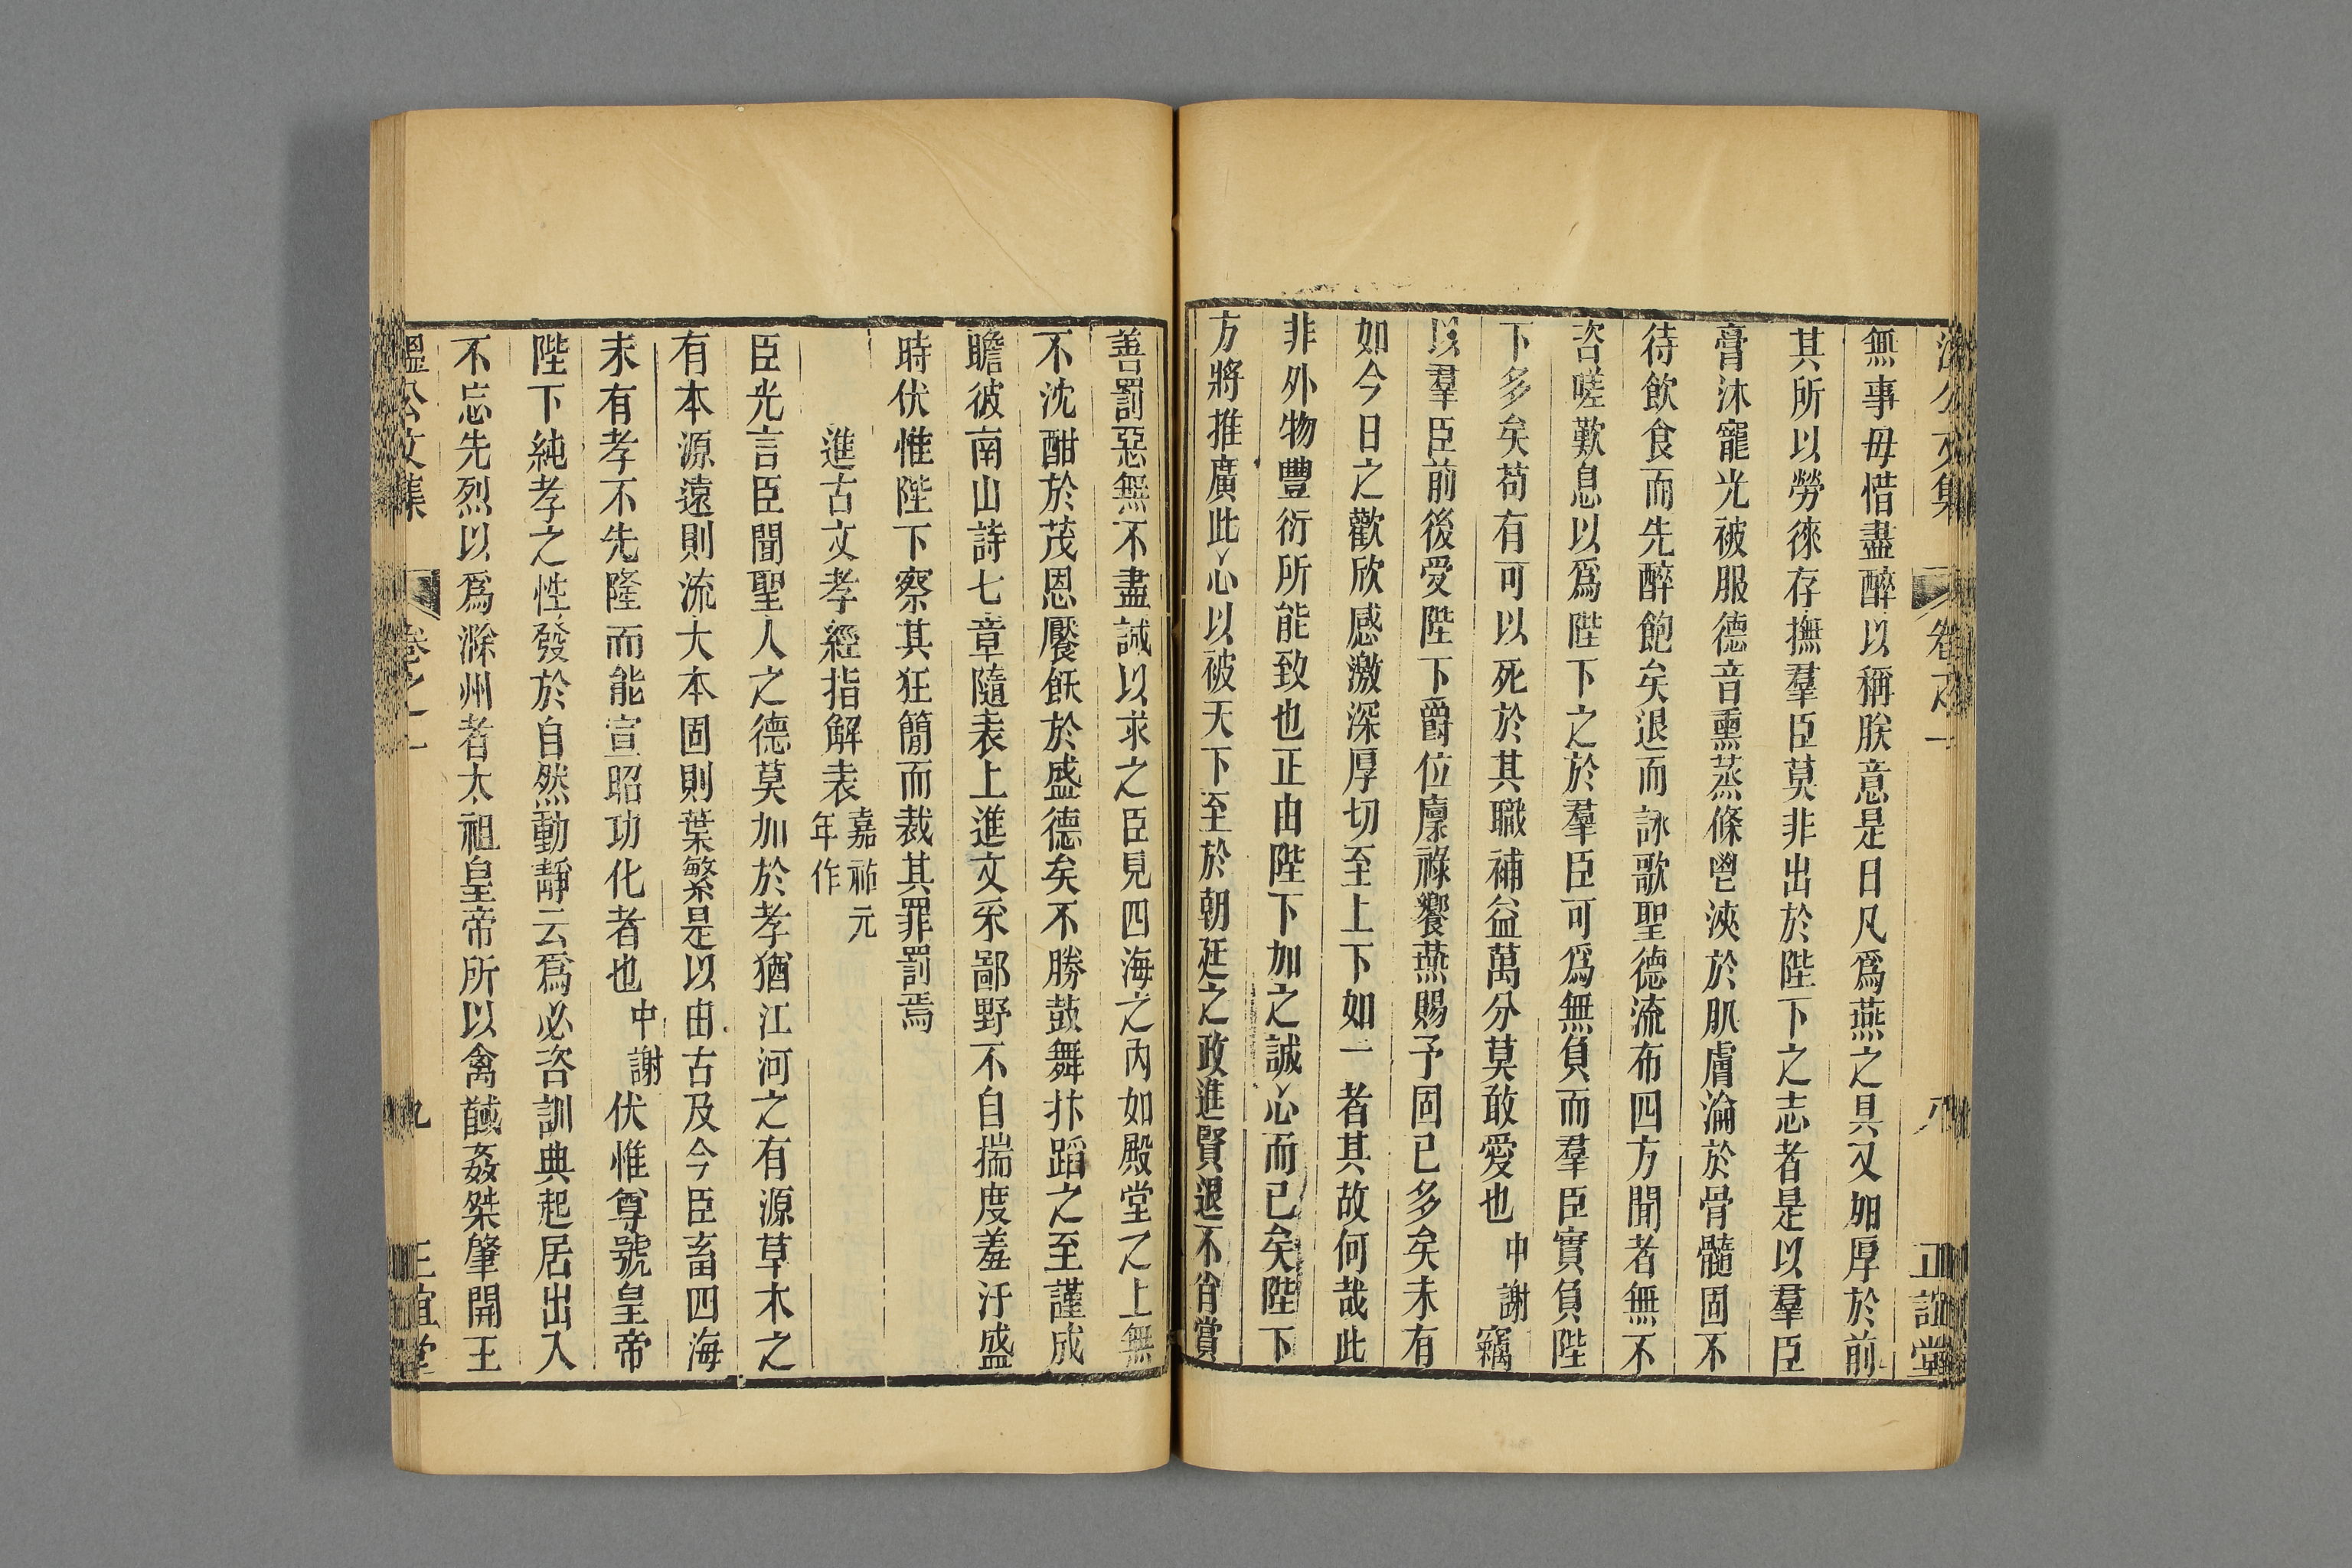 溫公文集 卷之一 八 正誼堂
無事毋惜盡醉以稱朕意是日凡爲燕之具又如厚於前
其所以勞徠存撫羣臣莫非出於陛下之志者是以羣臣
膏沐寵光被服德音熏蒸條鬯浹於肌膚淪於骨髓固不
待飲食而先醉飽矣退而詠歌聖德流布四方聞者無不
咨嗟歎息以爲陛下之於羣臣可爲無負而羣臣實負陛
下多矣苟有可以死於其職補益萬分莫敢愛也中謝竊
以羣臣前後愛陛下爵位廩祿饗燕賜予固已多矣未有
如今日之歡欣感激深厚切至上下如一者其故何哉此
非外物豐衍所能致也正由陛下加之誠心而已矣陛下
方將推廣此心以被天下至於朝廷之政進賢退不肖賞
善罰惡無不盡誠以求之臣見四海之內如殿堂之上無
不沈酣於茂恩饜飫於盛德矣不勝鼓舞抃蹈之至謹成
瞻彼南山詩七章隨表上進文采鄙野不自揣度羞汙盛
時伏惟陛下察其狂簡而裁其罪罰焉
進古文孝經指解表嘉祐元年作
臣光言臣聞聖人之德莫加於孝猶江河之有源草木之
有本源遠則流大本固則葉繁是以由古及今臣畜四海
未有孝不先隆而能宣昭功化者也中謝伏惟尊號皇帝
陛下純孝之性發於自然動靜云爲必咨訓典起居出入
不忘先烈以爲滁州者太祖皇帝所以禽馘姦桀肇開王
溫公文集 卷之一 九 正誼堂